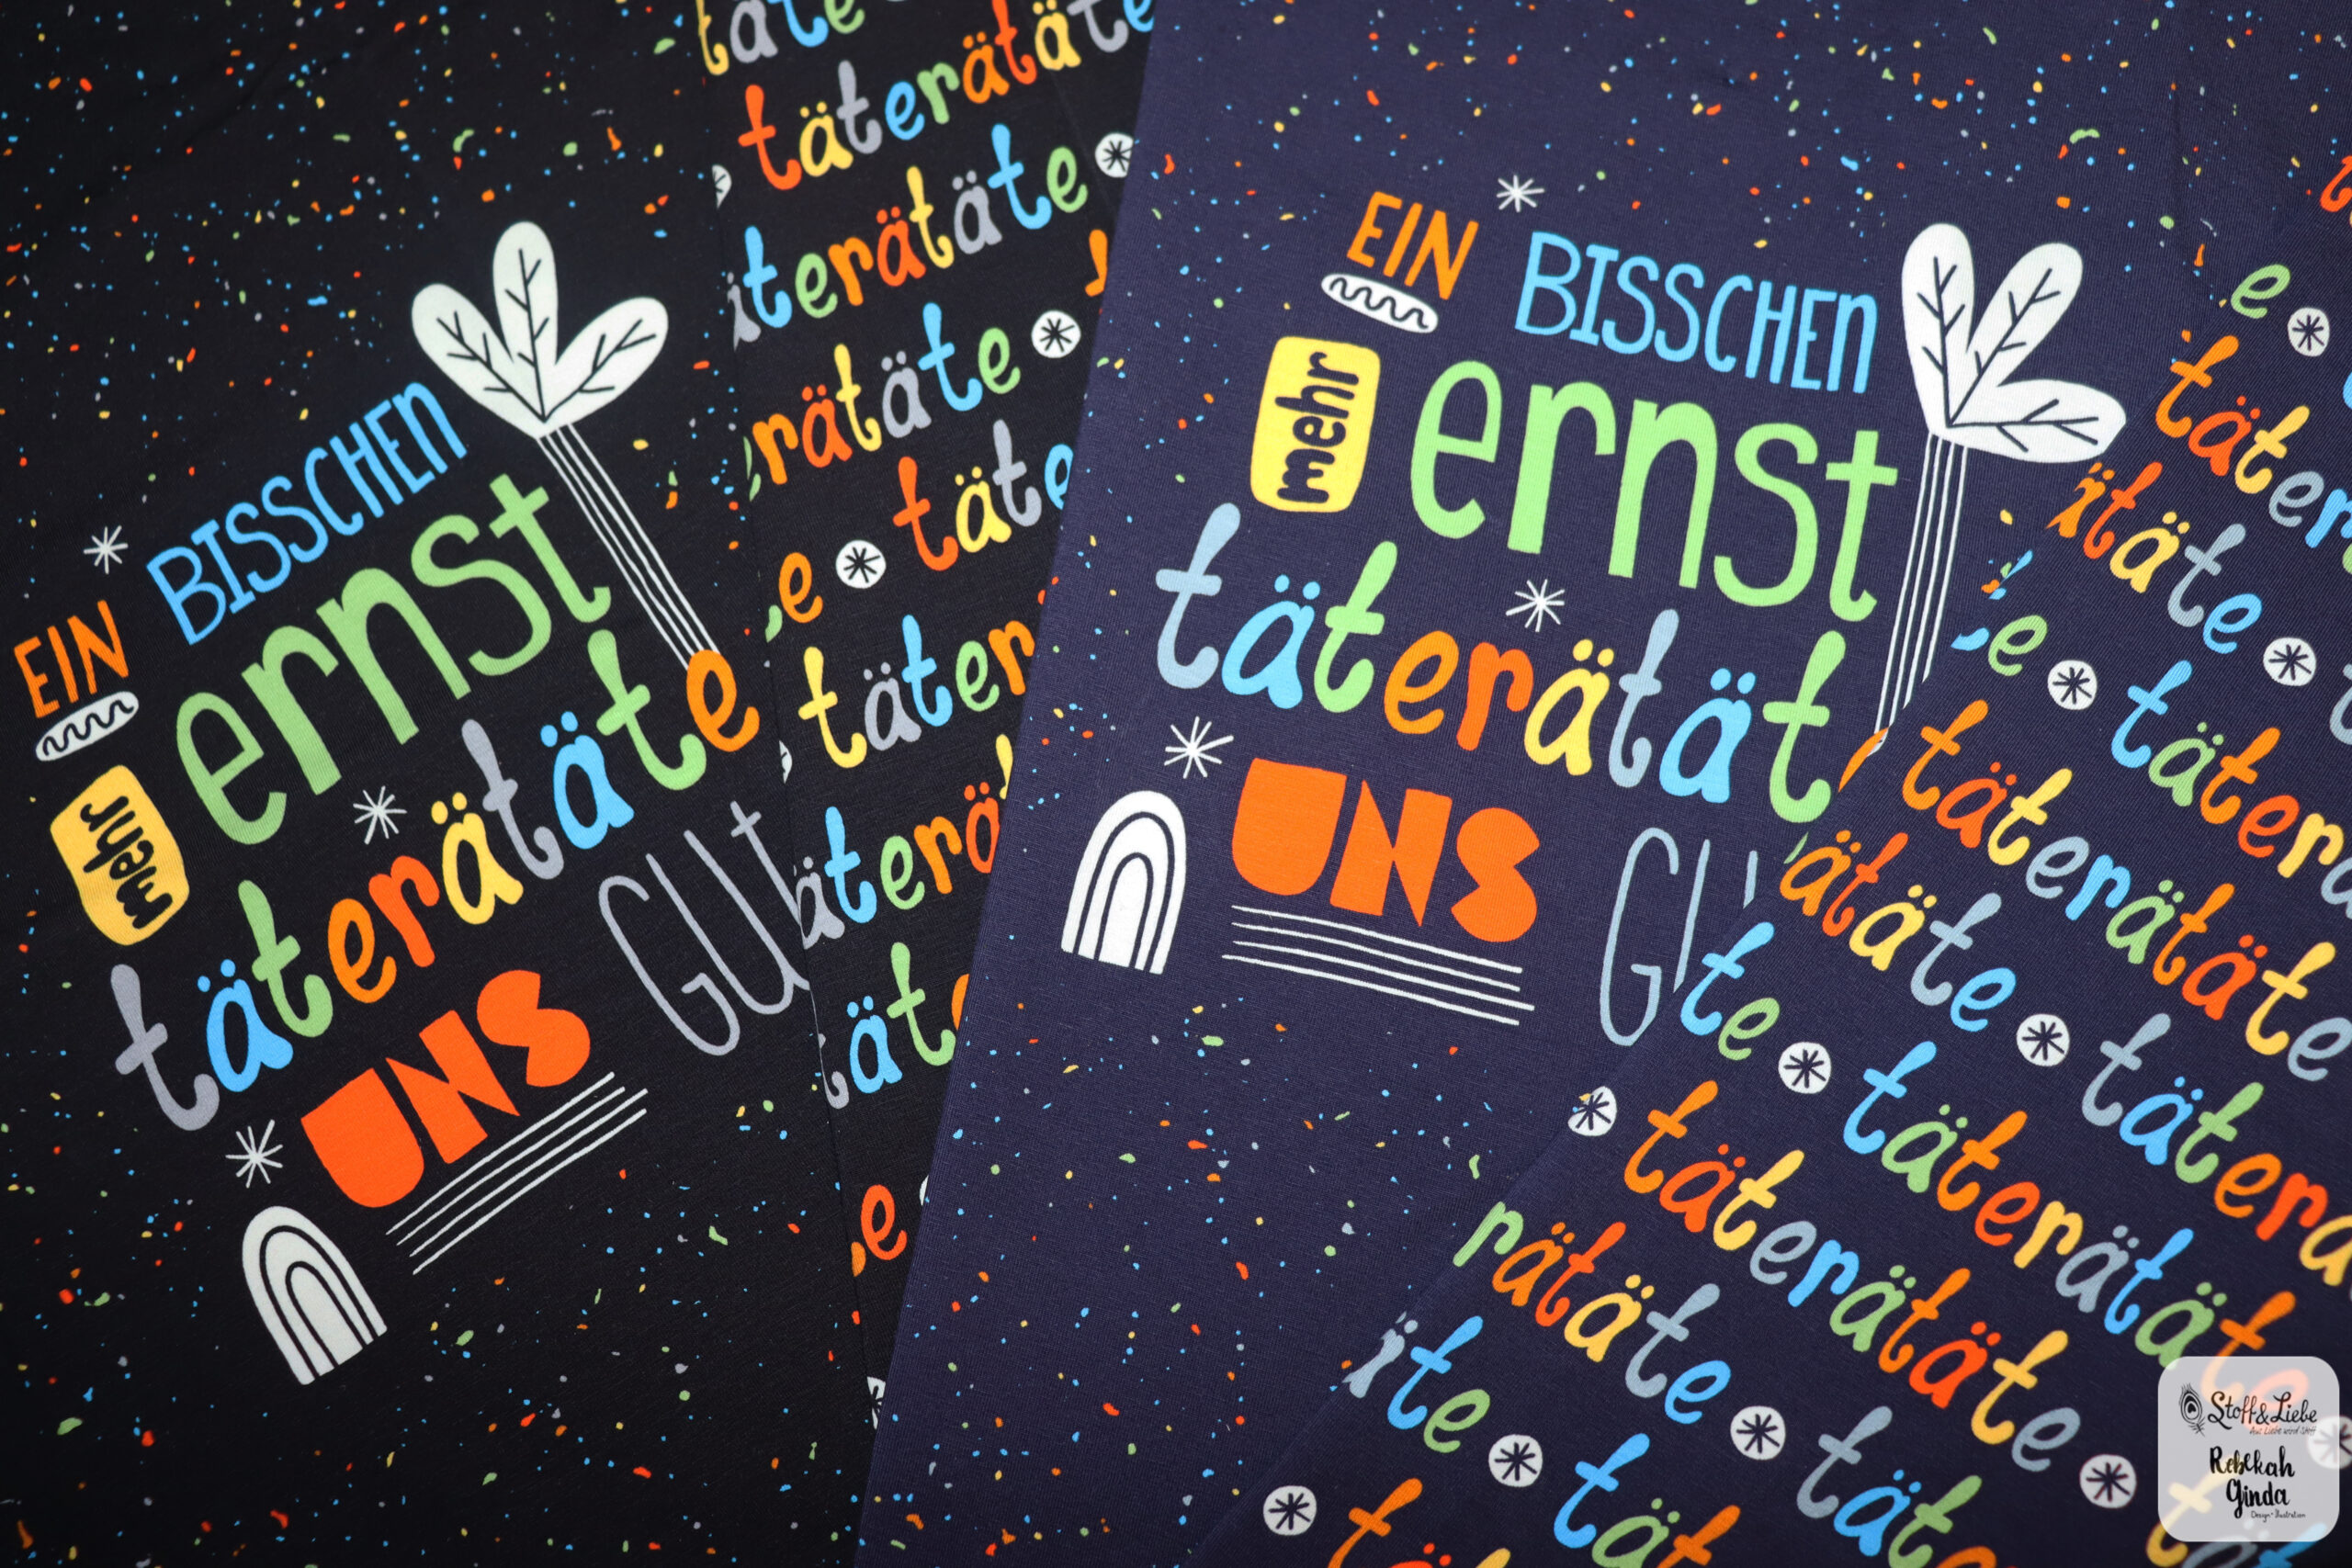 EIN BISSCHEN
mehr ernst
täterätäte
UNS GU
täte
täterätäte
terätäte
rätäte
e täte
e
täter
täterä
tät
e
EIN BISSCHEN
mehr ernst
täterätät
UNS G
e
täter
täte
e täter
täterä
ätäte täterätäte
te täterä
täterätät
rätäte täterätäte
te tät
tä
Stoff&Liebe
Aus Liebe wird Stoff
Rebekah
Ginda
Design+Illustration